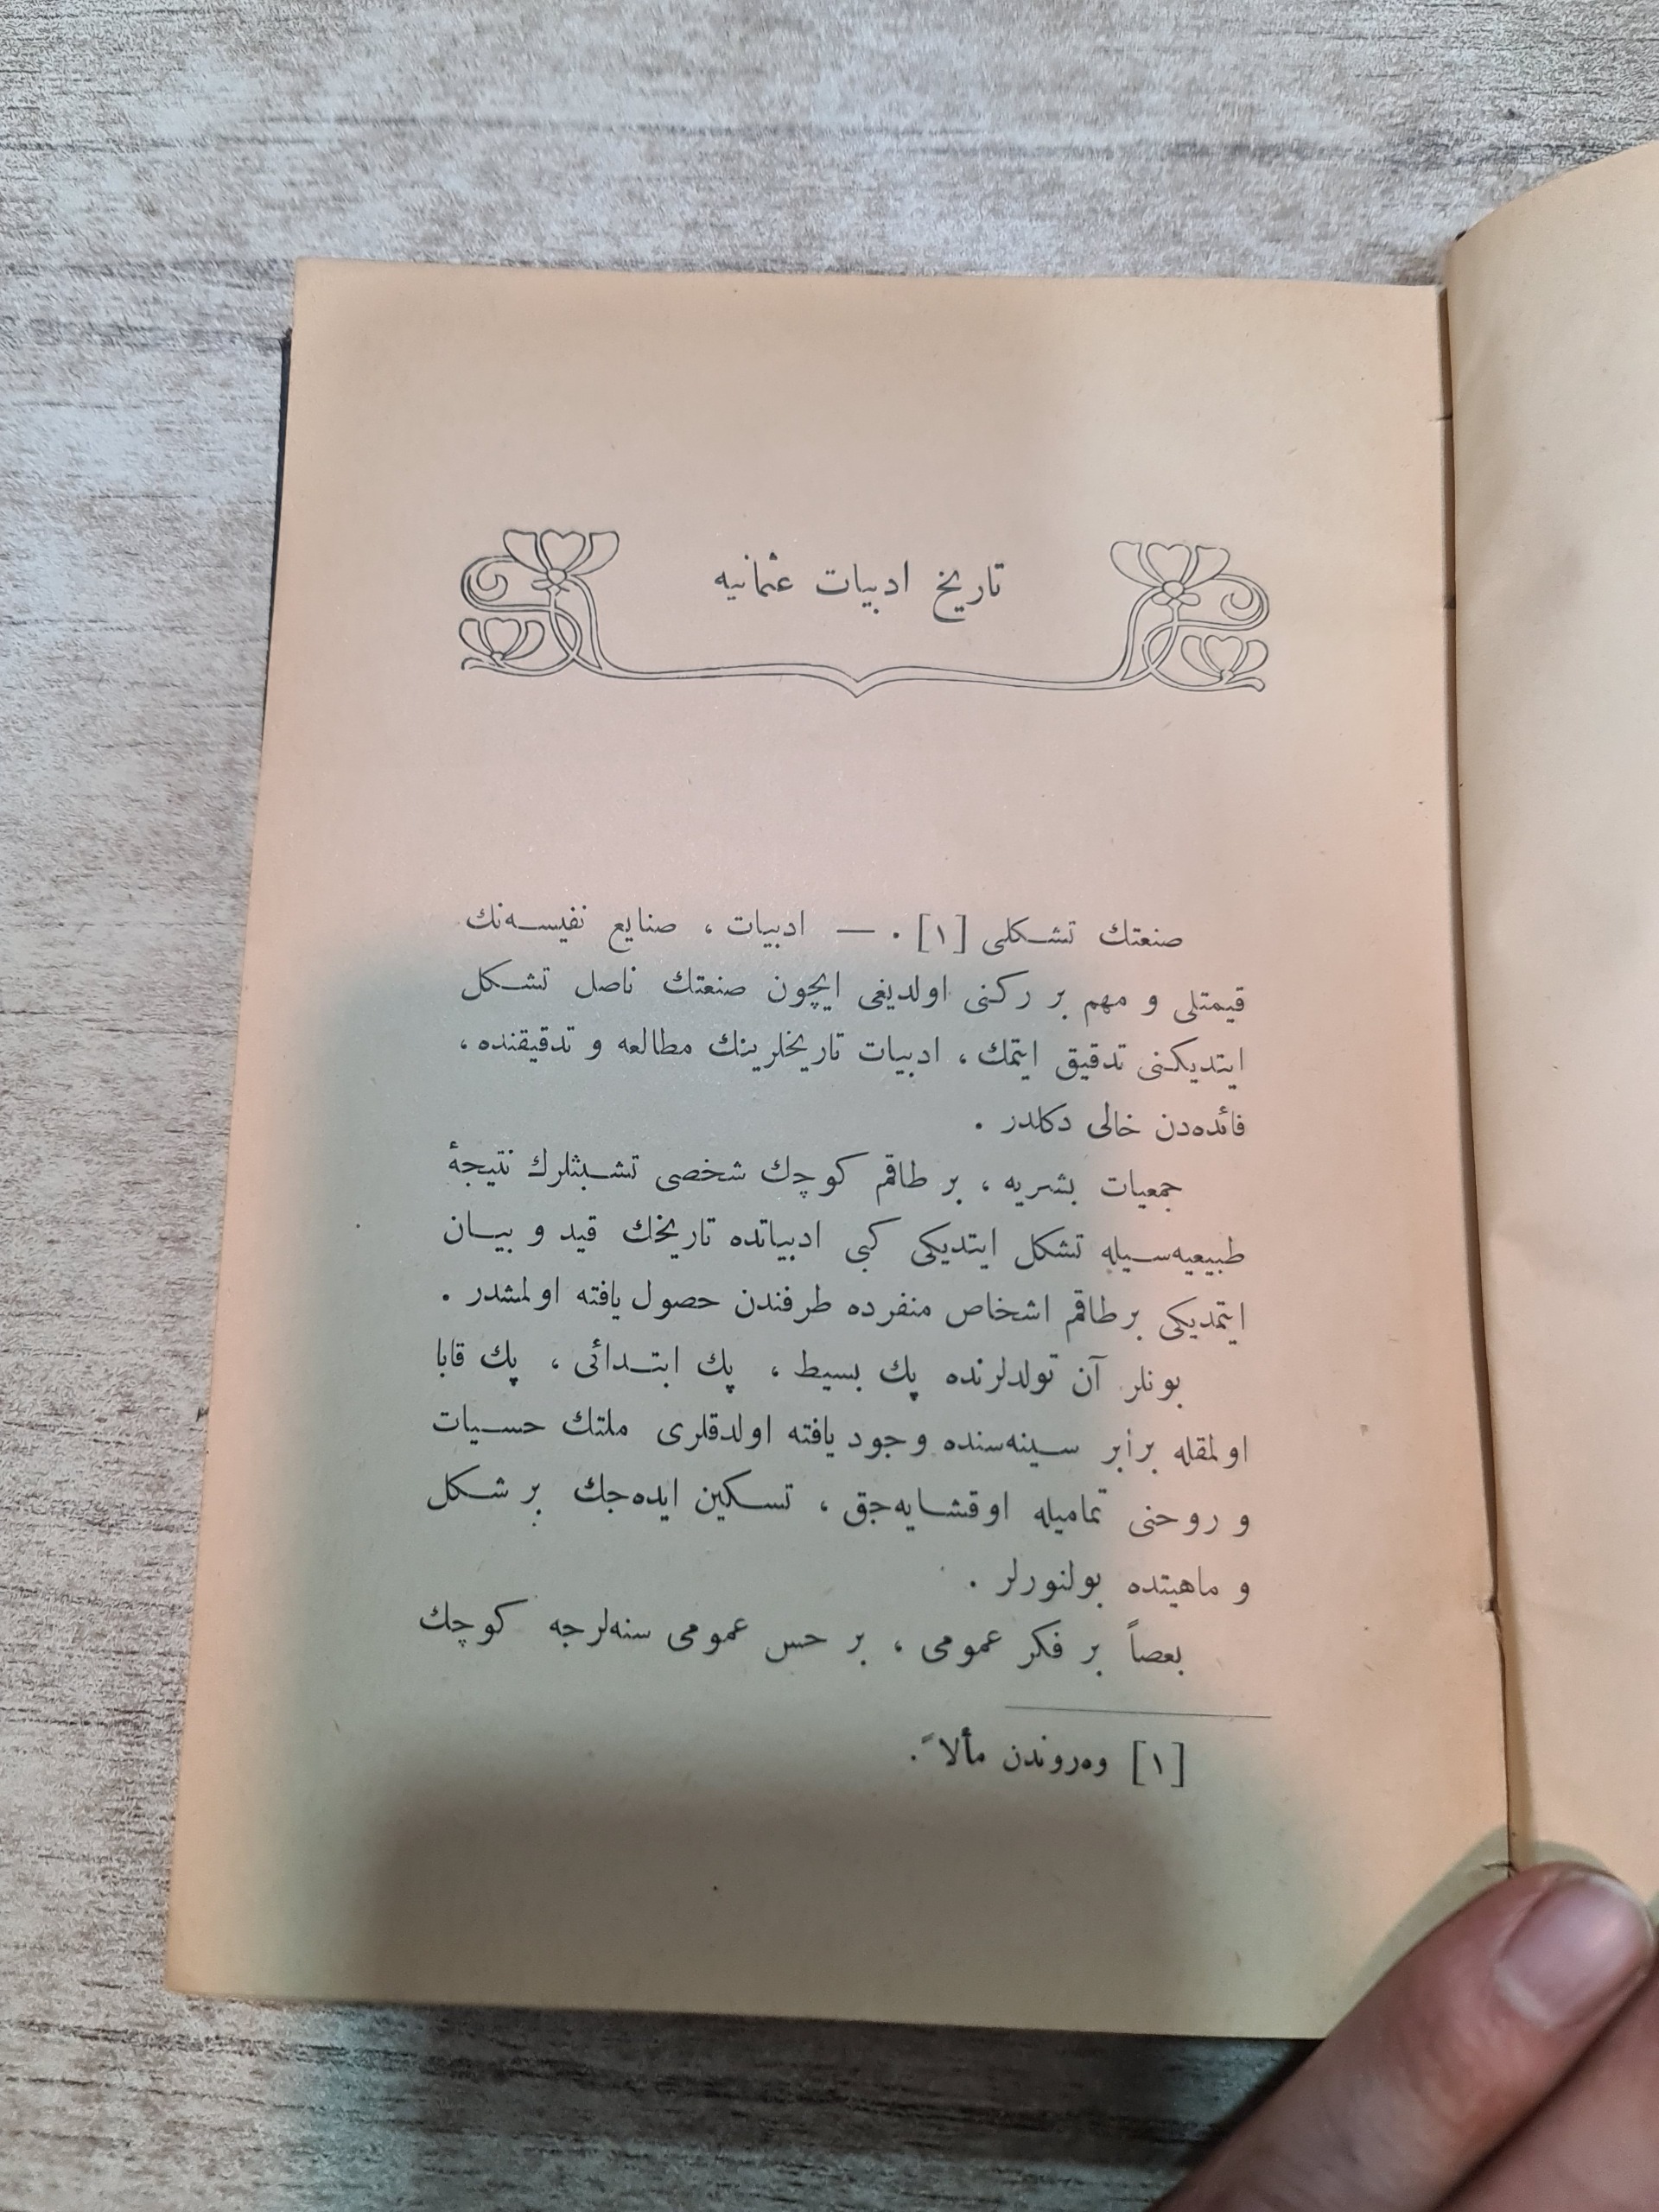 تاریخ ادبیات عثمانیه
صنعتك تشـكلی [١] . — ادبیات ، صنایع نفیسـه‌نك
قیمتلی و مهم بر ركنی اولدیغی ایچون صنعتك ناصل تشـكل
ایتدیكنی تدقیق ایتمك ، ادبیات تاریخلرینك مطالعه و تدقیقنده ،
فائده‌دن خالی دكلدر .
جمعیات بشریه ، بر طاقم كوچك شخصی تشـبثلرك نتیجۀ
طبیعیه‌سـیله تشكل ایتدیكی كبی ادبیاتده تاریخك قید و بیـان
ایتمدیكی بر طاقم اشخاص منفرده طرفندن حصول یافته اولمشدر .
بونلر آن تولدلرنده پك بسیط ، پك ابتـدائی ، پك قابا
اولمقله برأبر سـینه‌سنده وجود یافته اولدقلری ملتك حسـیات
و روحنی تمامیله اوقشـایه‌جق ، تسـكین ایده‌جك بر شـكل
و ماهیتده بولنورلر .
بعصاً بر فكر عمومی ، بر حس عمومی سنه‌لرجه كوچك
[١] وه‌روندن مألاً .